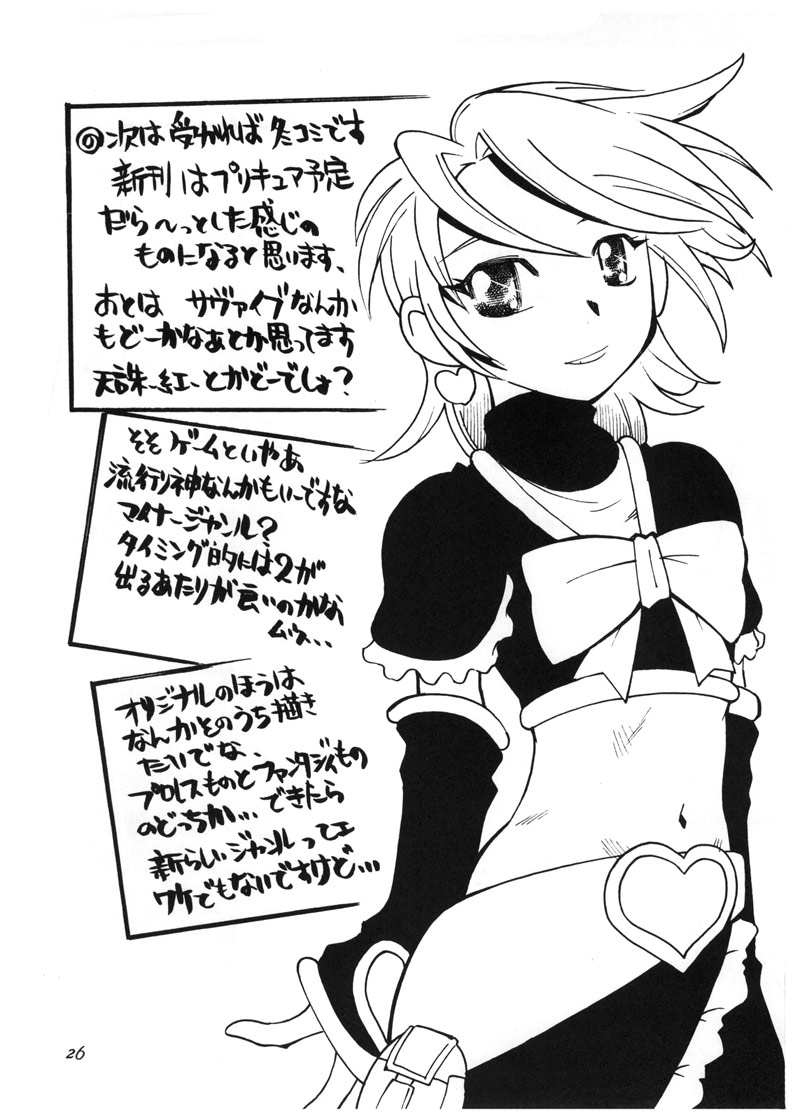 ◎次は受かれば冬コミです
新刊はプリキュア予定
だら〜っとした感じの
ものになると思います、
あとは サヴァイブなんか
もどーかなぁとか思ってます
天誅-紅-とかどーでしょ？
そそ ゲームといやぁ
流行り神なんかもいーですな
マイナージャンル？
タイミング的には2が
出るあたりが良いのかな
ムゥ…
オリジナルのほうは
なんかそのうち描き
たいでな、
プロレスものとファンタジィもの
のどっちか…できたら
新らしいジャンルってェ
ワケでもないですけど…
26